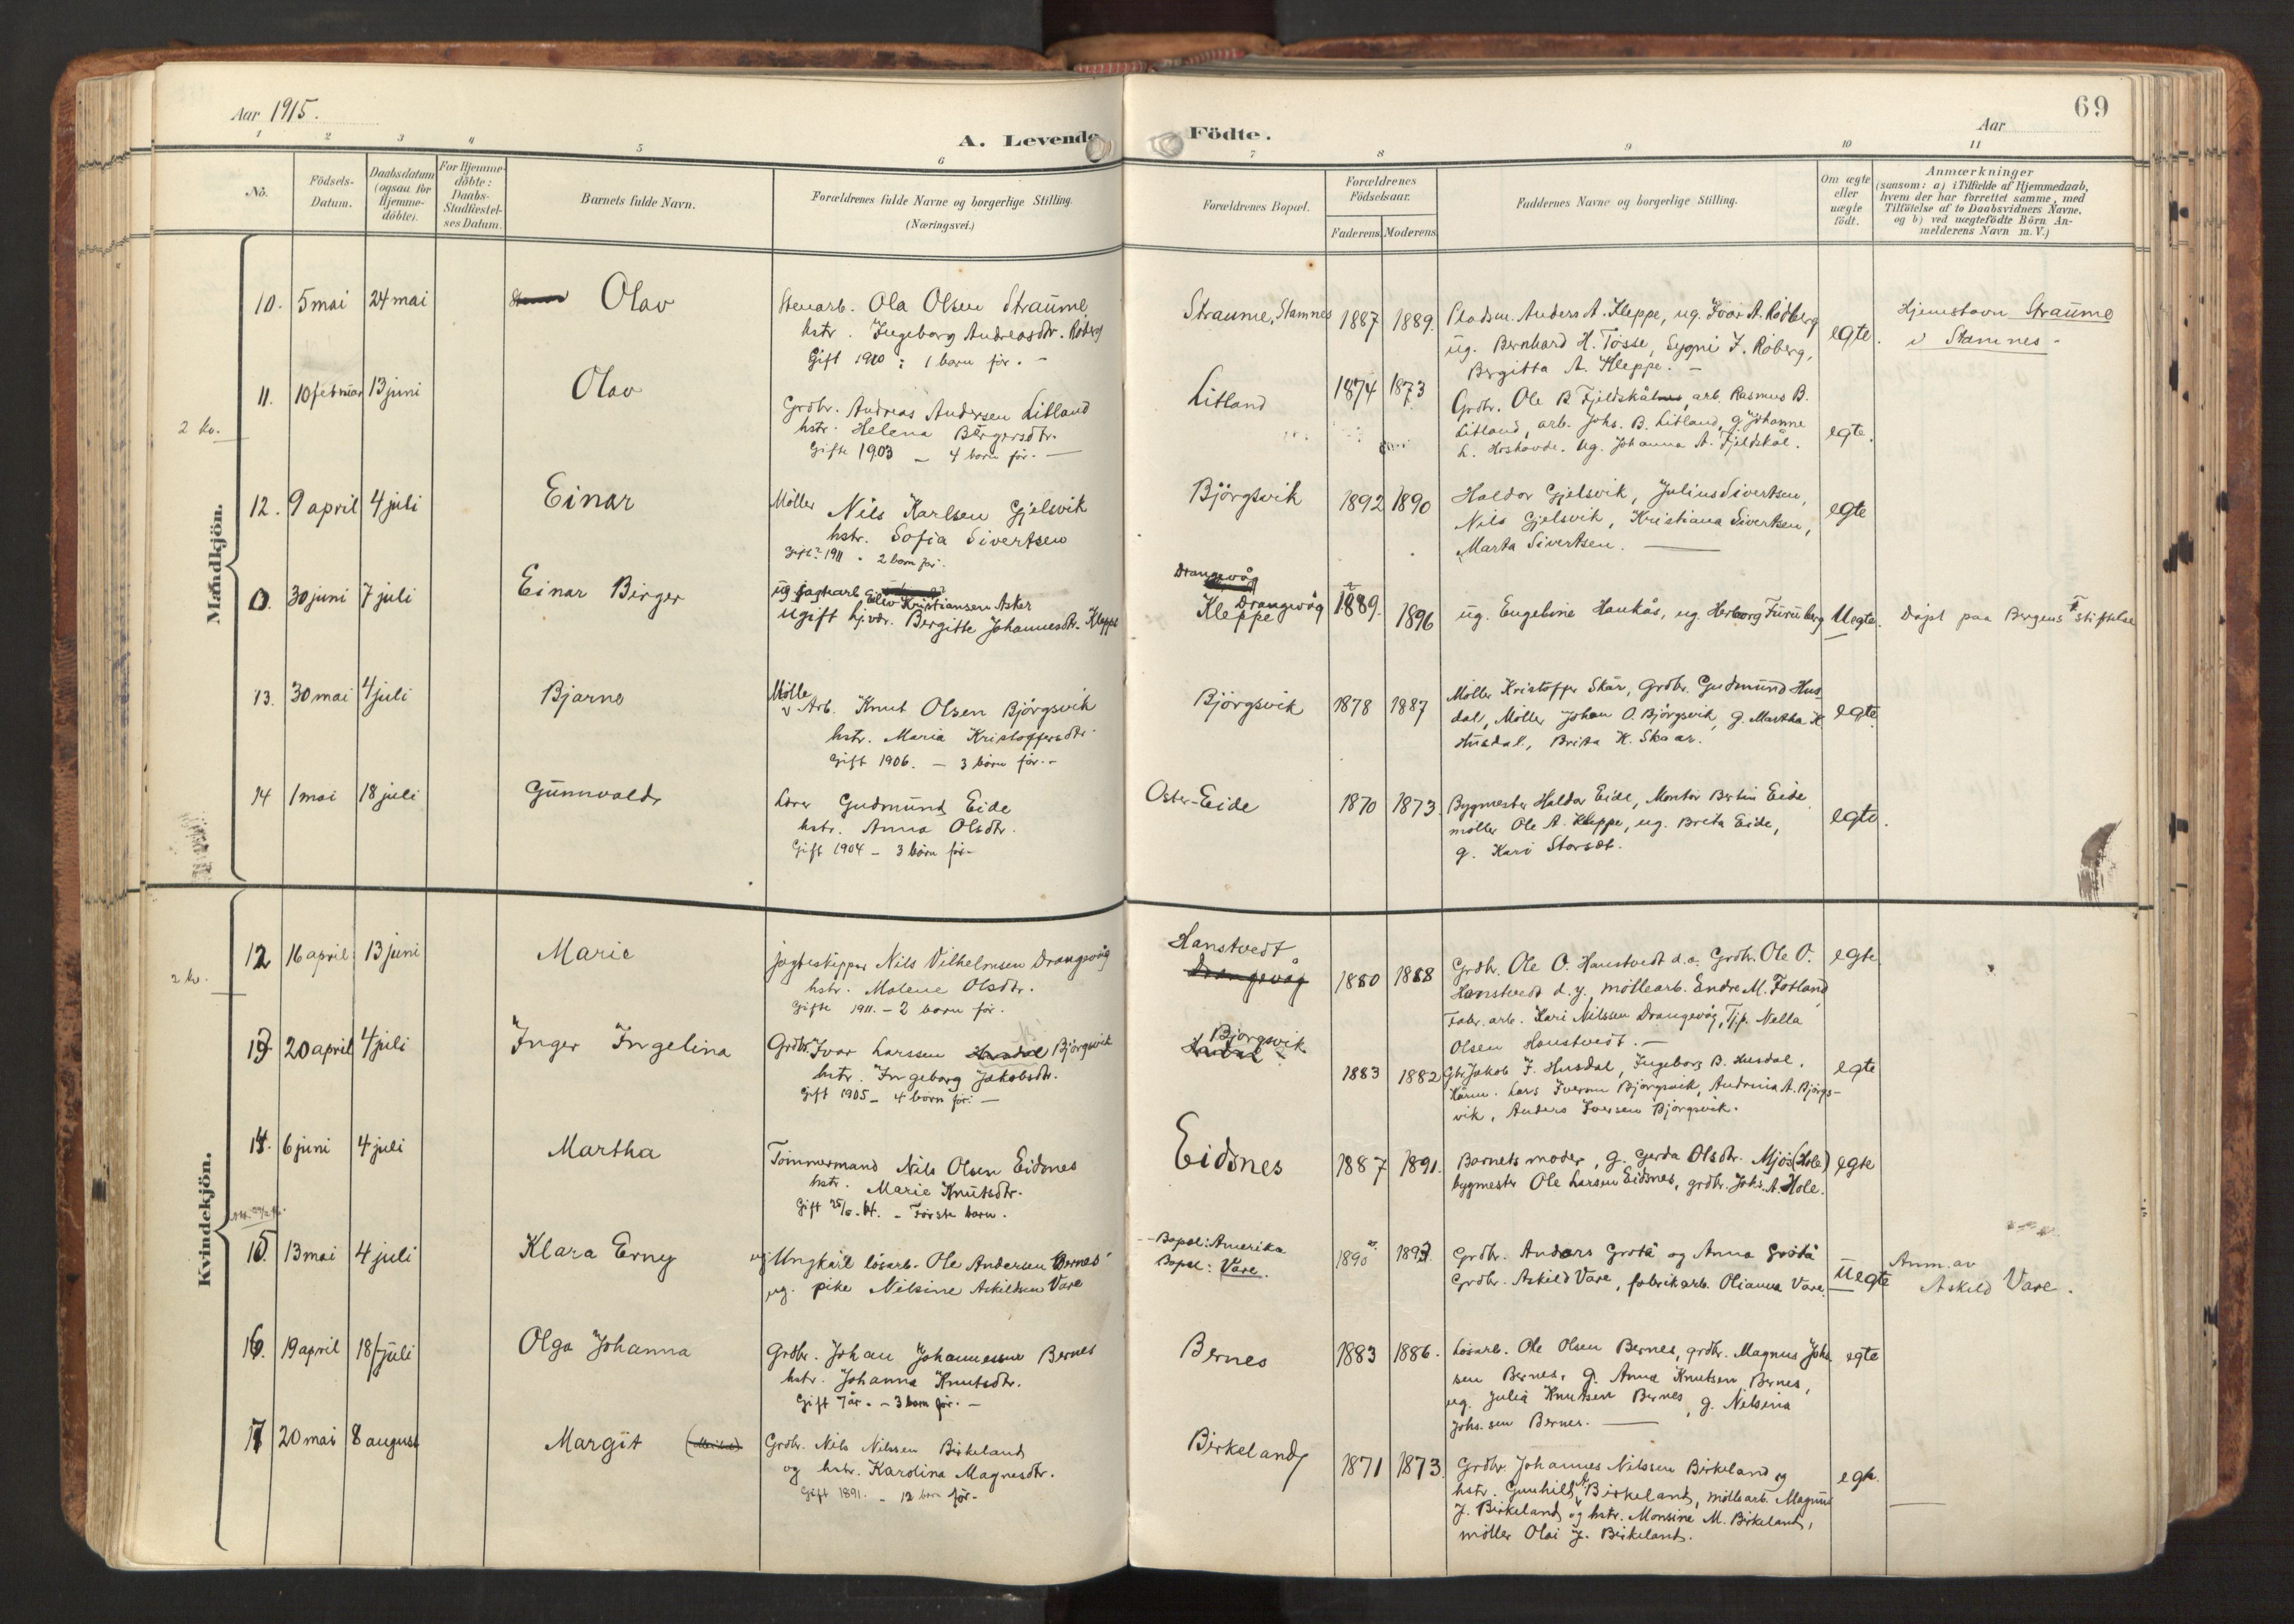 Aar 1915.
A. Levende Födte.
Aar
69
1 2 3 4 5 6 7 8 9 10 11
No.
Födsels-
Datum.
Daabsdatum
(ogsaa for
Hjemme-
döbte).
For Hjemme-
döbte:
Daabs-
Stadfæstel-
ses Datum.
Barnets fulde Navn.
Forældrenes fulde Navne og borgerlige Stilling.
(Næringsvei.)
Forældrenes Bopæl.
Forældrenes
Födselsaar.
Faderens. Moderens.
Faddernes Navne og borgerlige Stilling.
Om ægte
eller
uægte
födt.
Anmærkninger
(saasom: a) i Tilfælde af Hjemmedaab,
hvem der har forrettet samme, med
Tilföielse af to Daabsvidners Navne,
og b) ved uægtefödte Börn An-
melderens Navn m. V.)
Mandkjön.
10. 5 mai 24 mai Olav
Stenarb. Ola Olsen Straume
hstr. Ingeborg Andreasdtr. Röberg
Gift 1910 : 1 barn för. -
Straume, Stamnes 1887 1889.
Pladsm. Anders A. Kleppe, ug. Ivar A. Rödberg
ug. Bernhard H. Tösse, Sygni J. Röberg,
Bergitta A. Kleppe. -
egte.
Hjemstavn Straume
i Stamnes -
2 kv.
11. 10 februar 13 juni Olav
Grdbr. Andreas Andersen Litland
hstr. Helena Börgersdtr.
Gifte 1903 - 4 born för. -
Litland 1874 1873
Grdbr. Ole B. Fjeldskål, arb. Rasmus B.
Litland, arb. Johs. B. Litland, g. Johanne
L. Hoshovde. ug. Johanna A. Fjeldskål.
egte.
12. 9 april 4 juli Einar
Möller Nils Karlsen Gjelsvik
hstr. Sofia Sivertsen
Gift 1911 - 2 born för.
Björgsvik 1892 1890
Haldor Gjelsvik, Julius Sivertsen,
Nils Gjelsvik, Kristiana Sivertsen,
Marta Sivertsen.
egte
0. 30 juni 7 juli Einar Birger
ug. Eilev Kristiansen Asker
ugift hj.vær. Bergitte Johannesdtr. Kleppe
Drangevåg
Kleppe Drangevåg 1889. 1896
ug. Engeline Haukås, ug. Herborg Furuberg
Uegte.
Döpt paa Bergens F. stiftelse
13. 30 mai 4 juli Bjarne
Mölle
Arb. Knut Olsen Björgsvik
hstr. Maria Kristoffersdtr.
Gift 1906. - 3 börn för. -
Björgsvik 1878 1887
Möller Kristoffer Skår, Grdbr. Gudmund Hus
dal, Möller Johan O. Björgsvik, g. Martha K
Husdal, Brita K. Skaar.
egte.
14 1 mai 18 juli Gunnvald
Lærer Gudmund Eide
hstr. Anna Olsdtr.
Gift 1904 - 3 börn för -
Oster-Eide 1870 1873
Bygmester Haldor Eide, Montör Bertin Eide
möller Ole A. Kleppe, ug. Breta Eide,
g. Kari Storset.
egte.
Kvindekjön.
2 kv.
12 16 april 13 juni Marie
jagteskipper Nils Vilhelmsen Drangevåg
hstr. Malene Olsdtr.
Gifte 1911. - 2 born för.
Hanstvedt
Drangevåg 1880 1888
Grdbr. Ole O. Hanstvedt d.e. Grdbr. Ole O.
Hanstvedt d.y., möllearb. Endre M. Fotland
Fabr. arb. Kari Nilssen Drangevåg, Tjp. Nella
Olsen Hanstvedt. -
egte.
13 20 april 4 juli Inger Ingelina
Grdbr. Ivar Larssen Husdal Björgsvik
hstr. Ingeborg Jakobsdtr.
Gift 1905 - 4 born för. -
Björgsvik
Husdal 1883 1882
Gbr. Jakob J. Husdal, Ingeborg B. Husdal,
Lars Iversen Björgsvik, Andrina A. Björgs-
vik, Anders Iversen Björgsvik.
egte
14. 6 juni 4 juli Martha
Tömmermand Nils Olsen Eidsnes
hstr. Marie Knutsdtr.
Gift - Förste barn.
Eidsnes 1887 1891.
Barnets moder, g. Gerda Olsdtr. Mjös (Hole)
bygmester Ole Larsen Eidsnes, grdbr. Johs. A. Hole.
egte
15 13 mai 4 juli Klara Erny
Ungkarl lösarb. Ole Andersen Bernes
ug. pike Nilsine Askildsen Vare
Bopæl: Amerika
Bopæl: Vare. 1890 1893.
Grdbr. Anders Grötå og Anna Grötå
Grdbr. Askild Vare, fabrikarb. Olianna Vare.
Uegte
Anm. av
Askild Vare.
16. 19 april 18/juli Olga Johanna
Grdbr. Johan Johannessen Bernes
hstr. Johanna Knutsdtr.
Gift 7 år. - 3 barn för. -
Bernes 1883 1886.
Lösarb. Ole Olsen Bernes, grdbr. Magnus Johs
sen Bernes, g. Anna Knutsen Bernes,
ug. Julia Knutsen Bernes, g. Nilsina
Johs.sen Bernes.
egte
17 20 mai 8 august Margit
Grdbr. Nils Nilssen Birkeland
og hstr. Karolina Magnesdtr.
Gift 1891. - 12 barn för -
Birkeland 1871 1873
Grdbr. Johannes Nilssen Birkeland og
hstr. Gunhild Birkeland, möllearb. Magnus
J. Birkeland og hstr. Monsine M. Birkeland,
möller Olai J. Birkeland.
egte.